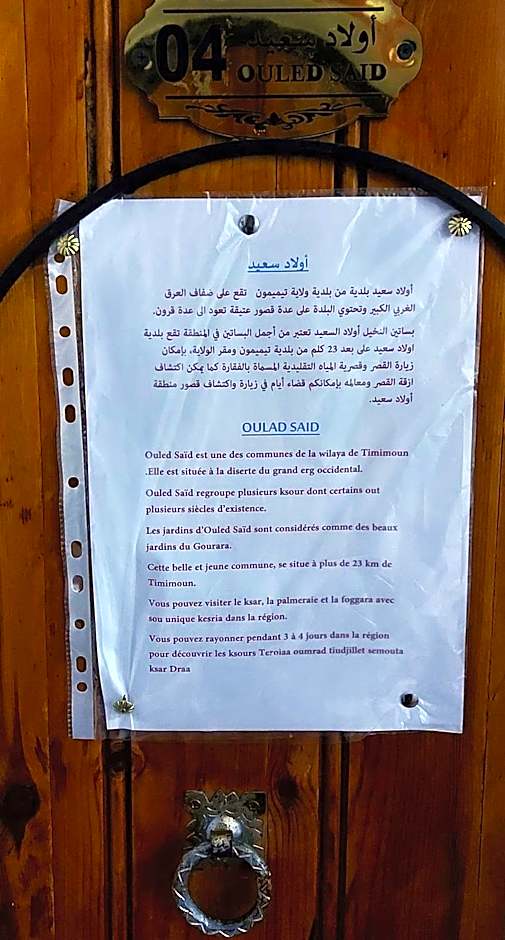 04
أولاد سعيد
OULED SAID
أولاد سعيد
أولاد سعيد بلدية من بلدية ولاية تيميمون تقع على ضفاف العرق
الغربي الكبير وتحتوي البلدة على عدة قصور عتيقة تعود الى عدة قرون.
بساتين النخيل أولاد السعيد تعتبر من أجمل البساتين في المنطقة تقع بلدية
اولاد سعيد على بعد 23 كلم من بلدية تيميمون ومقر الولاية، بإمكان
زيارة القصر وقصرية المياه التقليدية المسماة بالفقارة كما يمكن اكتشاف
ازقة القصر ومعالمه بإمكانكم قضاء أيام في زيارة واكتشاف قصور منطقة
أولاد سعيد.
OULAD SAID
Ouled Saïd est une des communes de la wilaya de Timimoun
.Elle est située à la diserte du grand erg occidental.
Ouled Saïd regroupe plusieurs ksour dont certains out
plusieurs siècles d'existence.
Les jardins d'Ouled Saïd sont considérés comme des beaux
jardins du Gourara.
Cette belle et jeune commune, se situe à plus de 23 km de
Timimoun.
Vous pouvez visiter le ksar, la palmeraie et la foggara avec
sou unique kesria dans la région.
Vous pouvez rayonner pendant 3 à 4 jours dans la région
pour découvrir les ksours Teroiaa oumrad tiudjillet semouta
ksar Draa